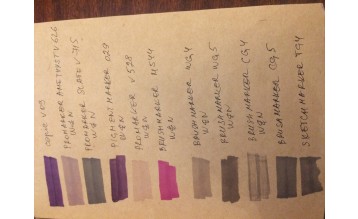 COPIC V09
PROMARKER AMETHYST V626
W&N
PROMARKER SLATE V715
W&N
PIGMENT MARKER 029
W&N
PROMARKER V528
W&N
BRUSHMARKER M544
W&N
BRUSHMARKER WG4
W&N
BRUSHMARKER WG5
W&N
BRUSHMARKER CG4
W&N
BRUSHMARKER CG5
SKETCHMARKER TG4